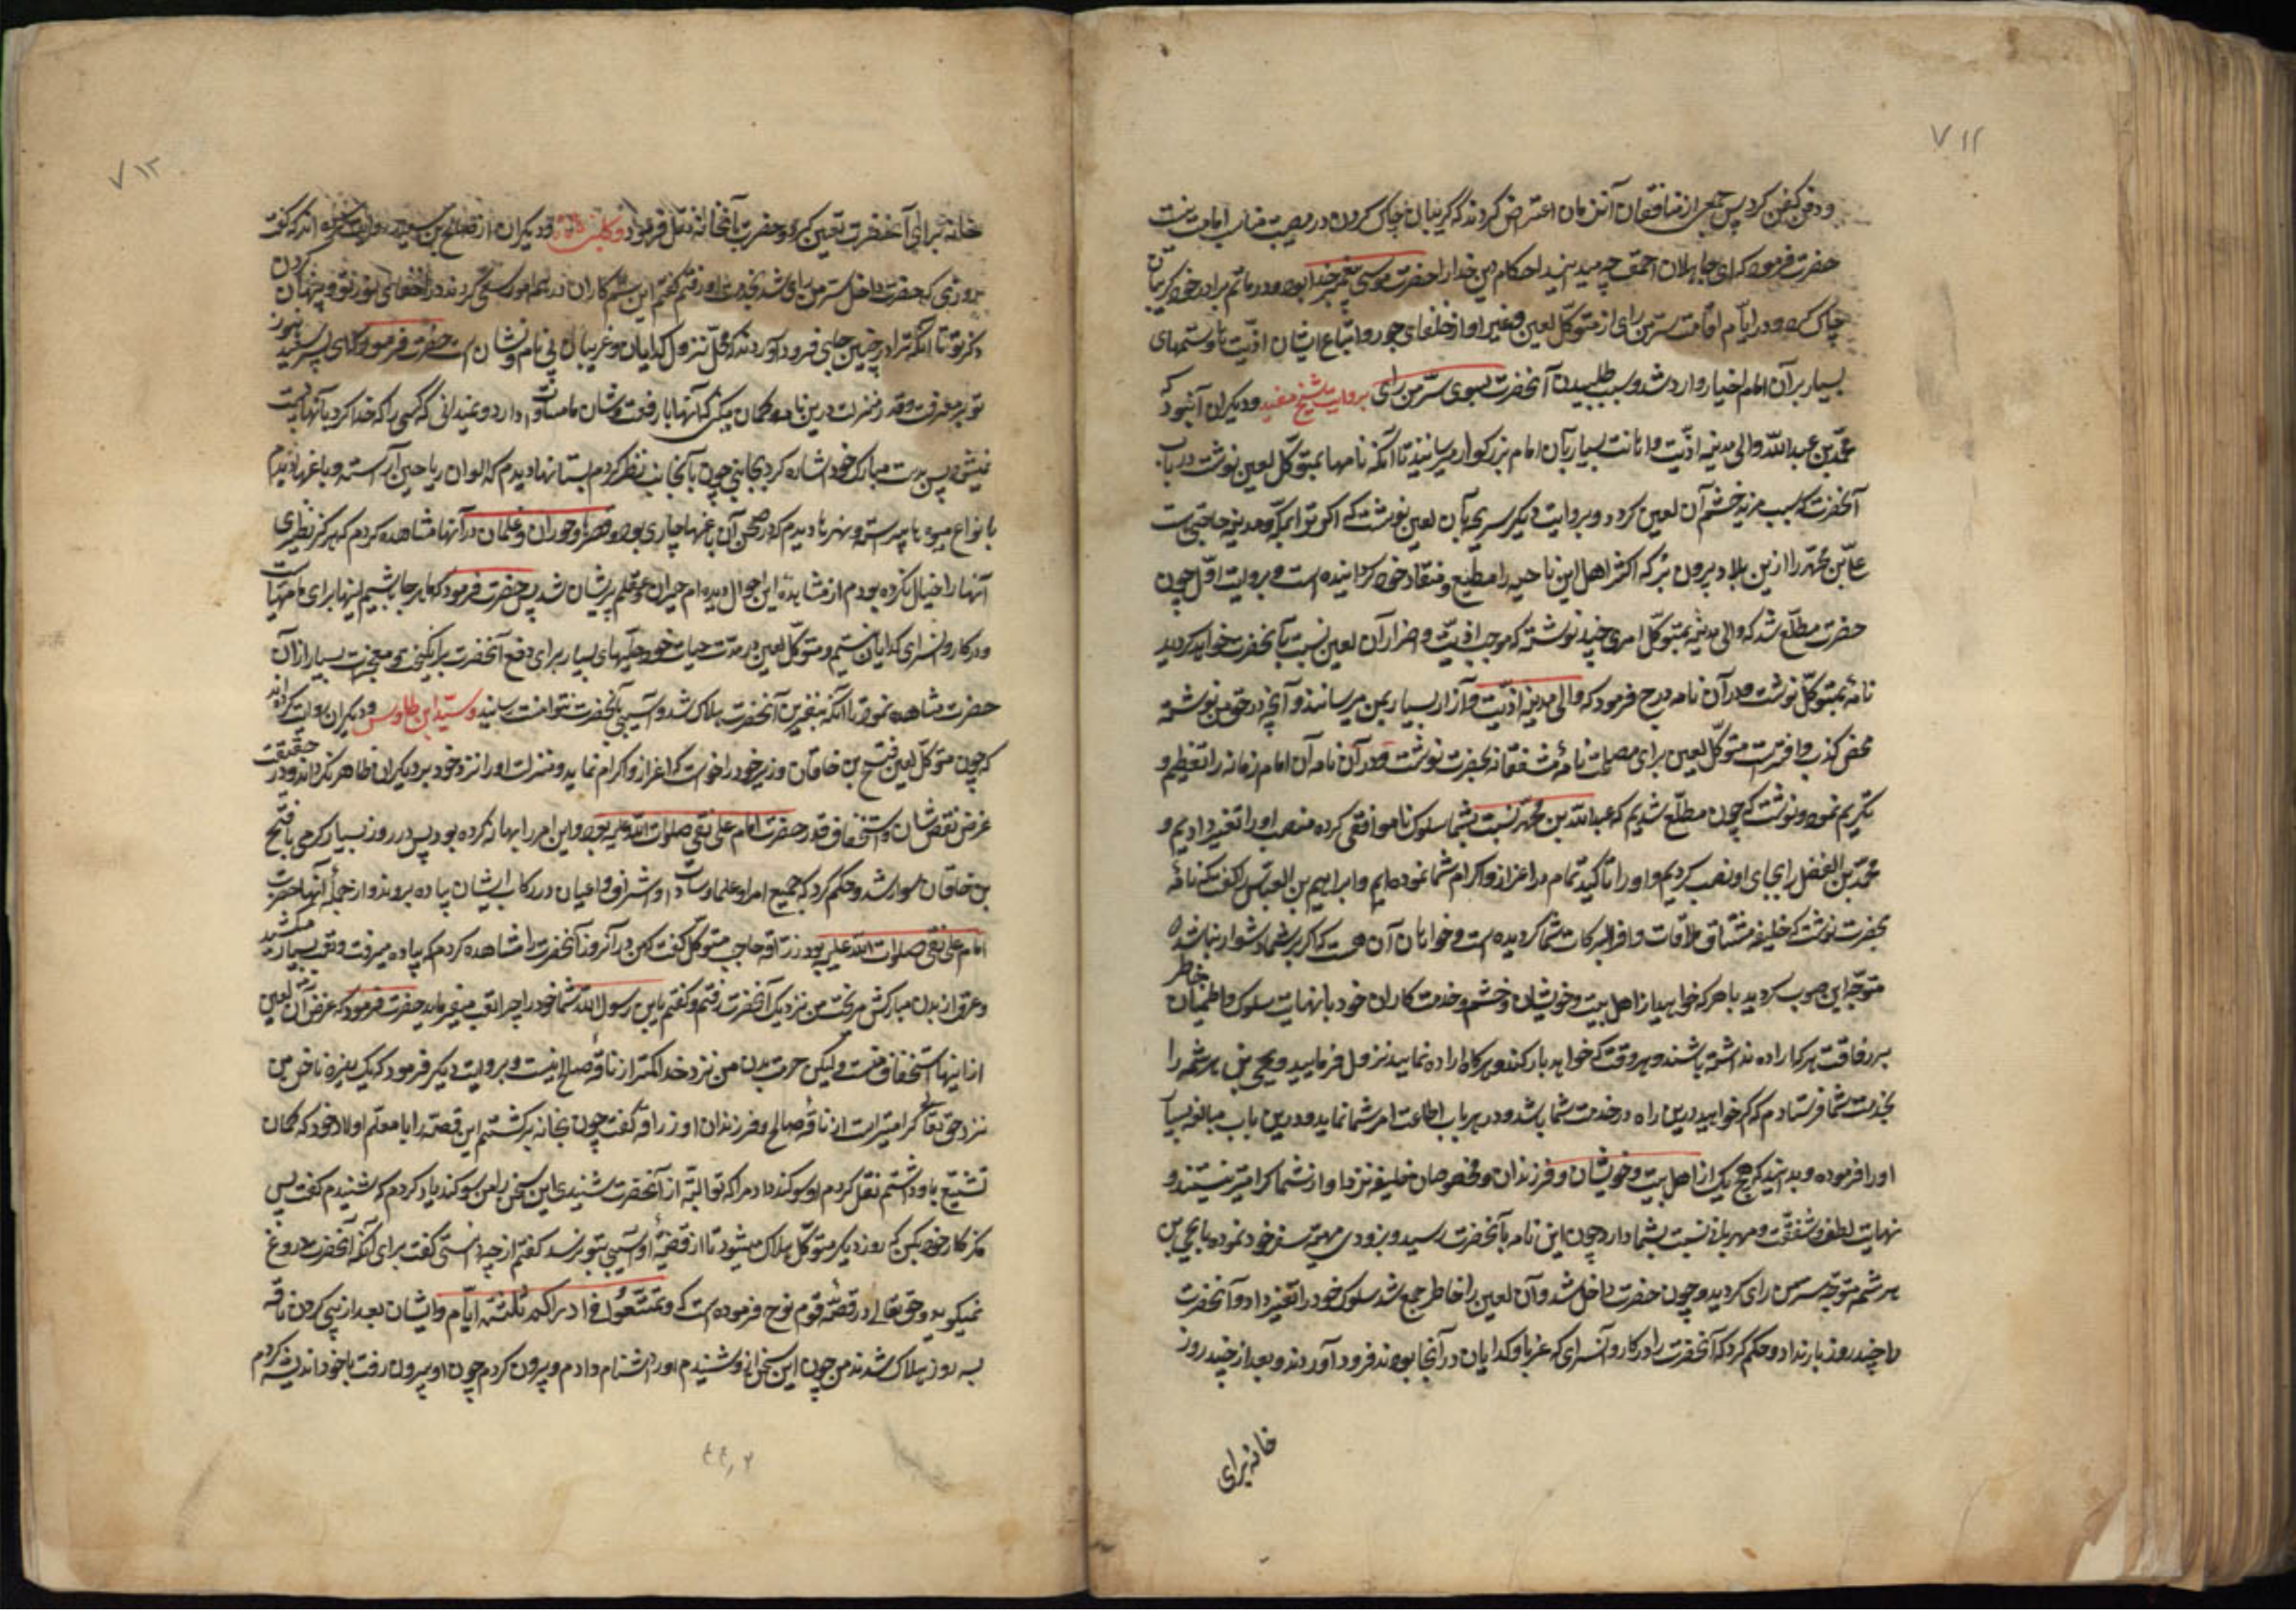 ۷۱۱
و دفن کفن کرد پس جمعی از منافقان آنزمان اعتراض کردند که گریبان چاک کردن در مصیبت مناسب امامت نیست
حضرت فرمود که ای جاهلان احمق چه میدانید احکام دین خدا را حضرت موسی پیغمبر خدا بود و در ماتم برادر خود گریبان
چاک کرد و در ایام اقامت سر من رای از متوکل لعین و غیر او از خلفای جور و اتباع ایشان اذیتها و ستمهای
بسیار بر آن امام اخیار وارد شد و سبب طلبیدن آنحضرت بسوی سر من رای بروایت شیخ مفید و دیگران آن بود که
محمد بن عبد الله والی مدینه اذیت و اهانت بسیار بآن امام بزرگوار میرسانید تا آنکه نامها بمتوکل لعین نوشت در باب
آنحضرت که سبب مزید خشم آن لعین گردد و بروایت دیگر بآن لعین نوشت که اگر ترا بمکه و مدینه حاجتی است
علی بن محمد را ازین بلاد بیرون بر که اکثر اهل این ناحیه را مطیع و منقاد خود گردانیده است و بروایت اول چون
حضرت مطلع شد که والی مدینه بمتوکل امری چند نوشته که موجب اذیت و اضرار آن لعین نسبت بآنحضرت خواهد گردید
نامهٔ بمتوکل نوشت و در آن نامه درج فرمود که والی مدینه اذیت و آزار بسیار بمن میرساند و آنچه در حق من نوشته
محض کذب و افتراست متوکل لعین برای مصلحت نامهٔ مشفقانه بحضرت نوشت و در آن نامه آن امام زمانه را تعظیم و
تکریم نمود و نوشت که چون مطلع شدیم که عبد الله بن محمد نسبت بشما سلوک ناموافقی کرده منصب او را تغییر دادیم و
محمد بن الفضل را بجای او نصب کردیم و او را تاکید تمام در اعزاز و اکرام شما نموده‌ایم و ابراهیم بن العباس را گفت که نامهٔ
بحضرت نوشت که خلیفه مشتاق ملاقات وافر البرکات شما گردیده است و خواهان آن هست که اگر بر شما دشوار نباشد
متوجه این صوب گردید با هر که خواهید از اهل بیت و خویشان و حشم و خدمتکاران خود با نهایت سکون و اطمینان خاطر
برفاقت هر که اراده نداشته باشند و هر وقت که خواهید بار کنید و هر گاه اراده نمایید نزول فرمایید و یحیی بن هرثمه را
بخدمت شما فرستادم که اگر خواهید درین راه در خدمت شما باشد و در هر باب اطاعت امر شما نماید و درین باب مبالغه بسیار
او را فرموده و بدانید که هیچ یک از اهل بیت و خویشان و فرزندان و مخصوصان خلیفه نزد او از شما گرامیتر نیستند و
نهایت لطف و شفقت و مهربانی نسبت بشما دارد چون این نامه بآنحضرت رسید و بزودی تهیه سفر خود نموده با یحیی بن
هرثمه متوجه سر من رای گردید و چون حضرت داخل شد و آن لعین را خاطر جمع شد سلوک خود را تغییر داد و آنحضرت
را چند روز بار نداد و حکم کرد که آنحضرت را در کاروانسرای که غربا و گدایان در آنجا بودند فرود آوردند و بعد از چند روز
خانه برای
۷۱۲
خانه برای آنحضرت تعیین کردند و حضرت بآنخانه نقل فرمود و کلینی و دیگران از صالح بن سعید روایت کرده اند که گفت
روزی که حضرت داخل سر من رای شد بخدمت او رفتم گفتم این ستمکاران در همه امور سعی کردند در اطفای نور تو و پنهان کردن
ذکر تو تا آنکه ترا در چنین جایی فرود آوردند که محل نزول گدایان و غریبان بی نام و نشان است حضرت فرمود که ای پسر سعید هنوز
تو در معرفت قدر و منزلت ما درین پایه و گمان میکنی که اینها با رفعت شان ما منافات دارد و نمیدانی که کسی را که خدا بلند کرد باینها پست
نمیشود پس بدست مبارک خود اشاره کرد بجانبی چون بآنجانب نظر کردم بستانها دیدم که بالوان ریاحین آراسته و باغها دیدم
بانواع میوه‌ها پیراسته و نهرها دیدم که در صحن آن باغها جاری بود و قصرها و حوران و غلمان در آنها مشاهده کردم که هرگز نظیر
آنها را خیال نکرده بودم از مشاهده این احوال دیده‌ام حیران و عقلم پریشان شد پس حضرت فرمود که ما هر جا باشیم اینها برای ما مهیاست
و در کاروانسرای گدایان نیستیم و متوکل لعین در مدت حیات خود حیلهای بسیار برای دفع آنحضرت برانگیخت و معجزات بسیار از آن
حضرت مشاهده نمود تا آنکه بنفرین آنحضرت هلاک شد و آسیبی بآنحضرت نتوانست رسانید و سید ابن طاوس و دیگران روایت کرده‌اند
که چون متوکل لعین فتح بن خاقان وزیر خود را خواست که اعزاز و اکرام نماید و منزلت او را نزد خود بر دیگران ظاهر گرداند و در حقیقت
غرض نقص شان و استخفاف قدر حضرت امام علی نقی صلوات الله علیه بود و این امر را بهانه کرده بود پس در روز بسیار گرمی با فتح
بن خاقان سوار شد و حکم کرد که جمیع امرا و علما و سادات و اشراف و اعیان در رکاب ایشان پیاده بروند و از جملهٔ آنها حضرت
امام علی نقی صلوات الله علیه بود زرافه حاجب متوکل گفت که من در آنروز آنحضرت را مشاهده کردم که پیاده میرفت و تعب بسیار میکشید
و عرق از بدن مبارکش میریخت من نزدیک آنحضرت رفتم و گفتم یا بن رسول الله شما خود را چرا تعب میفرمایید حضرت فرمود که غرض آن لعین
از اینها استخفاف منست ولیکن حرمت بدن من نزد خدا کمتر از ناقه صالح نیست و بروایت دیگر فرمود که یک ریزه ناخن من
نزد حق تعالی گرامیتر است از ناقهٔ صالح و فرزندان او زرافه گفت چون بخانه برگشتم این قصه را با معلم اولاد خود که گمان
تشیع باو داشتم نقل کردم او سوگند داد مرا که تو البته از آنحضرت شنیدی این سخن را من سوگند یاد کردم که شنیدم گفت پس
فکر کار خود بکن که روز دیگر متوکل هلاک میشود تا از قضیهٔ او آسیبی بتو نرسد گفتم از چه دانستی گفت برای آنکه آنحضرت دروغ
نمیگوید و حق تعالی در قصهٔ قوم نوح فرموده است که و تمتعوا فی دارکم ثلثة ایام و ایشان بعد از پی کردن ناقه
بسه روز هلاک شدند من چون این سخن از او شنیدم او را دشنام دادم و بیرون کردم چون او بیرون رفت با خود اندیشه کردم